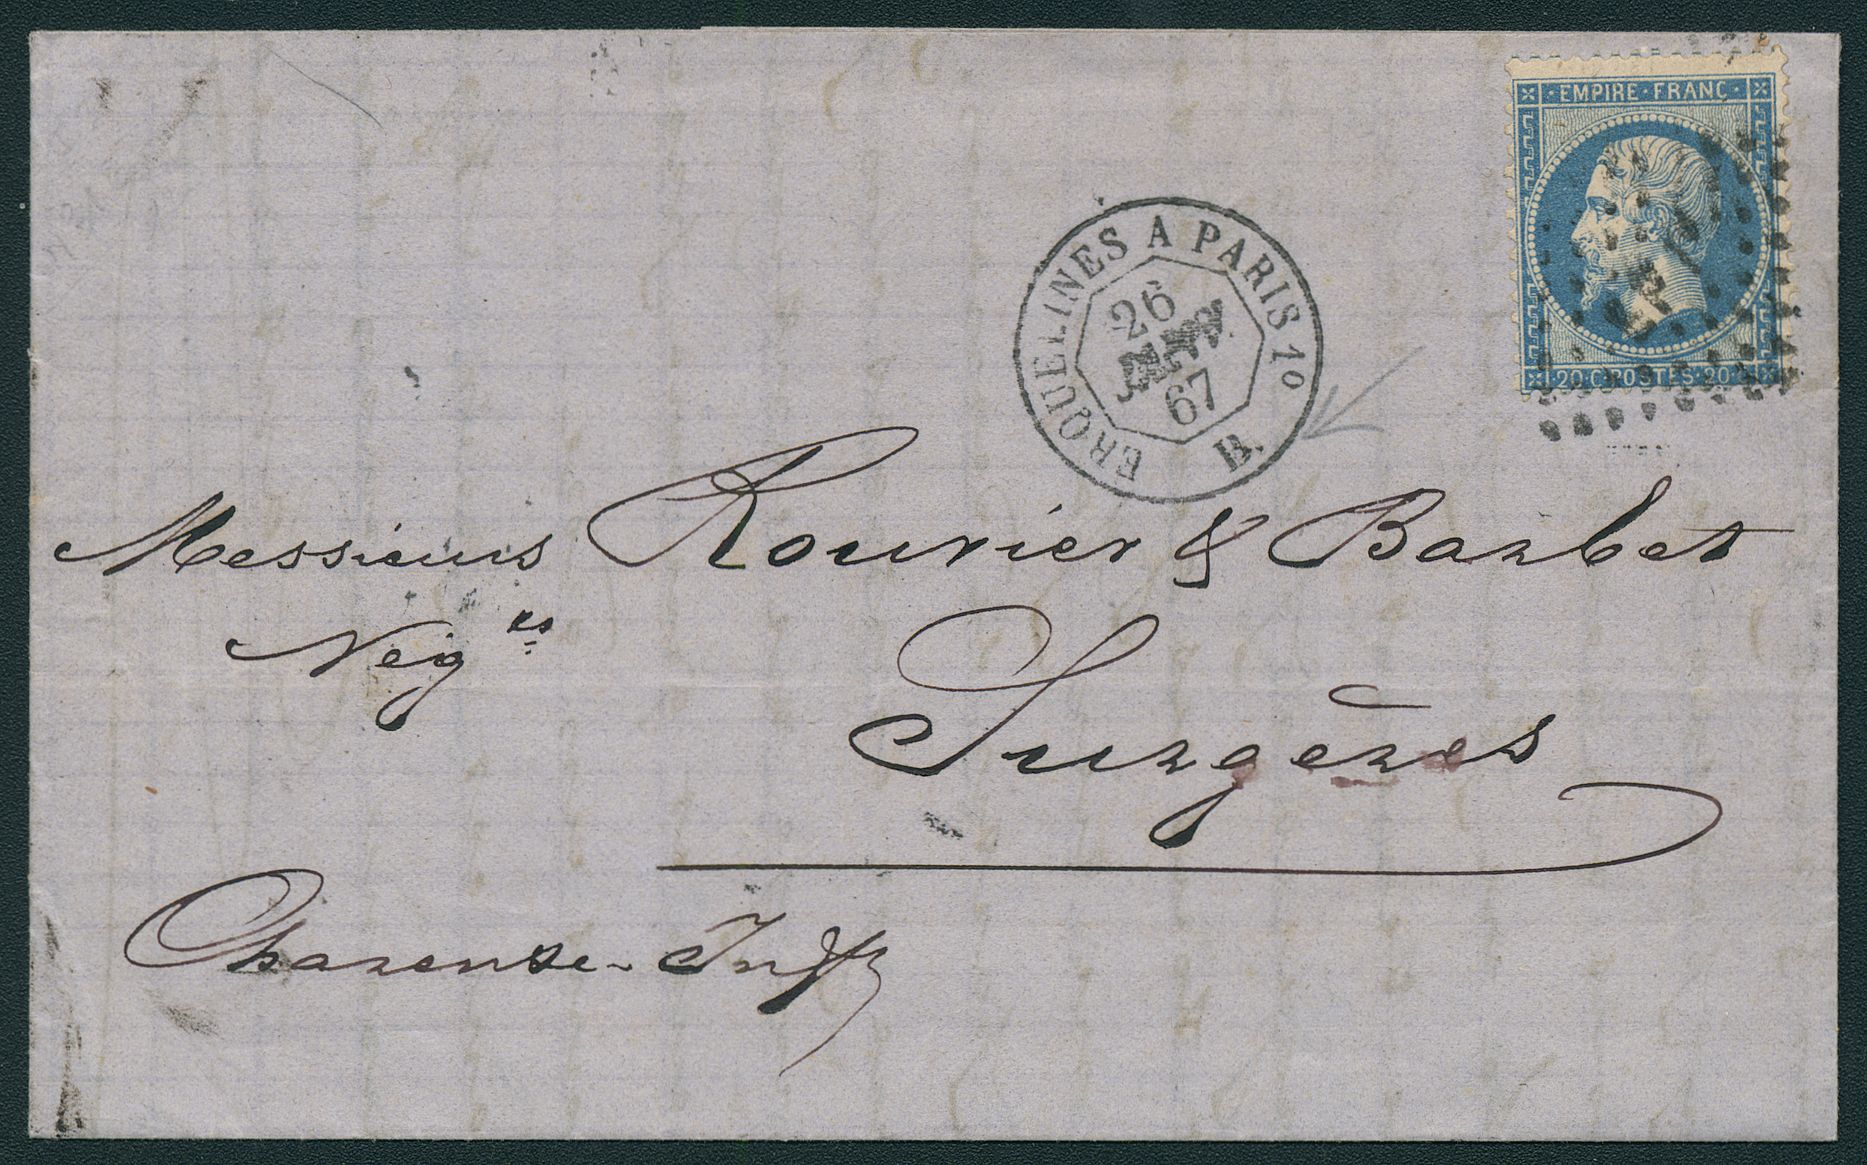 · EMPIRE · FRANC ·
20 C POSTES 20
ERQUELINES A PARIS 10
26
67
B.
Messieurs Rouvier & Barbet
Nég es
Surgères
Charente-Infr